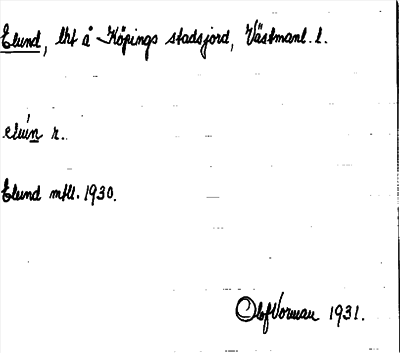 Elund, lht å Köpings stadsjord, Västmanl. l.
eluín r.
Elund mtll. 1930.
Olof Vorman 1931.